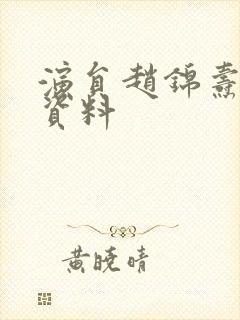 演員趙錦燾
資料
黃曉晴